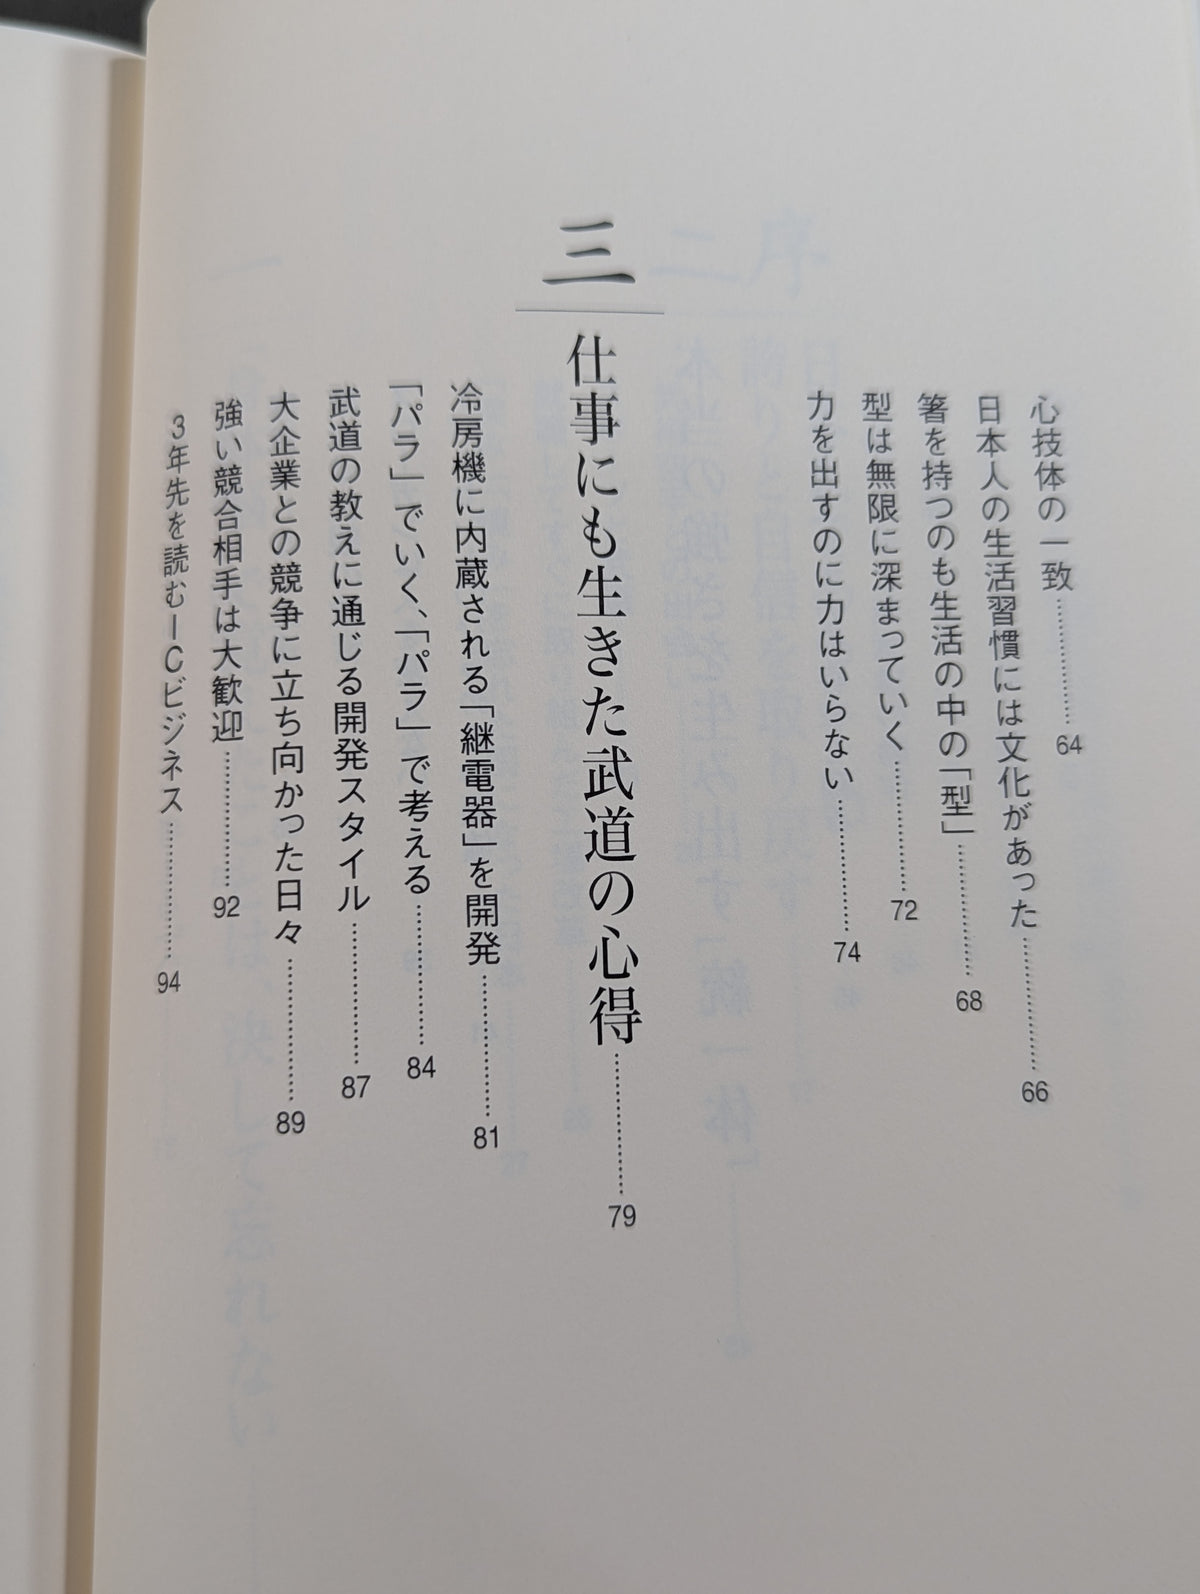 心技体の一致……………64
日本人の生活習慣には文化があった……………66
箸を持つのも生活の中の「型」……………68
型は無限に深まっていく……………72
力を出すのに力はいらない……………74
三 仕事にも生きた武道の心得……………79
冷房機に内蔵される「継電器」を開発……………81
「パラ」でいく、「パラ」で考える……………84
武道の教えに通じる開発スタイル……………87
大企業との競争に立ち向かった日々……………89
強い競合相手は大歓迎……………92
3年先を読むICビジネス……………94